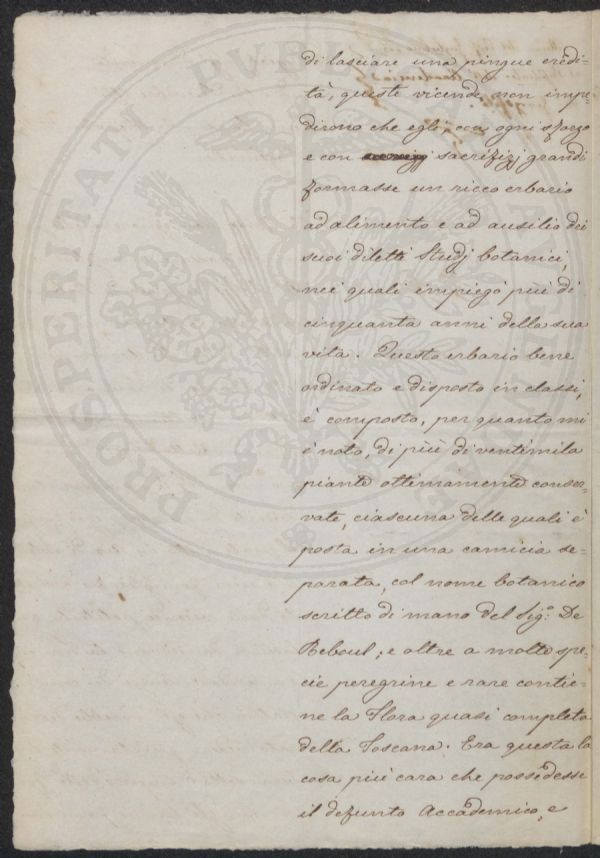 di lasciare una pingue eredi-
tà, queste vicende non impe-
dirono che egli, con ogni sforzo
e con sacrifizj grandi
formasse un ricco erbario
ad alimento e ad ausilio dei
suoi diletti Studj botanici,
nei quali impiegò più di
cinquanta anni della sua
vita. Questo erbario bene
ordinato e disposto in classi,
è composto, per quanto mi
è noto, di più di ventimila
piante ottimamente conser-
vate, ciascuna delle quali è
posta in una camicia se-
parata, col nome botanico
scritto di mano del Sigr. De
Reboul; e oltre a molte spe-
cie peregrine e rare contie-
ne la Flora quasi completa
della Toscana. Era questa la
cosa più cara che possedesse
il defunto Accademico, e
PROSPERITATI PUBLICAE